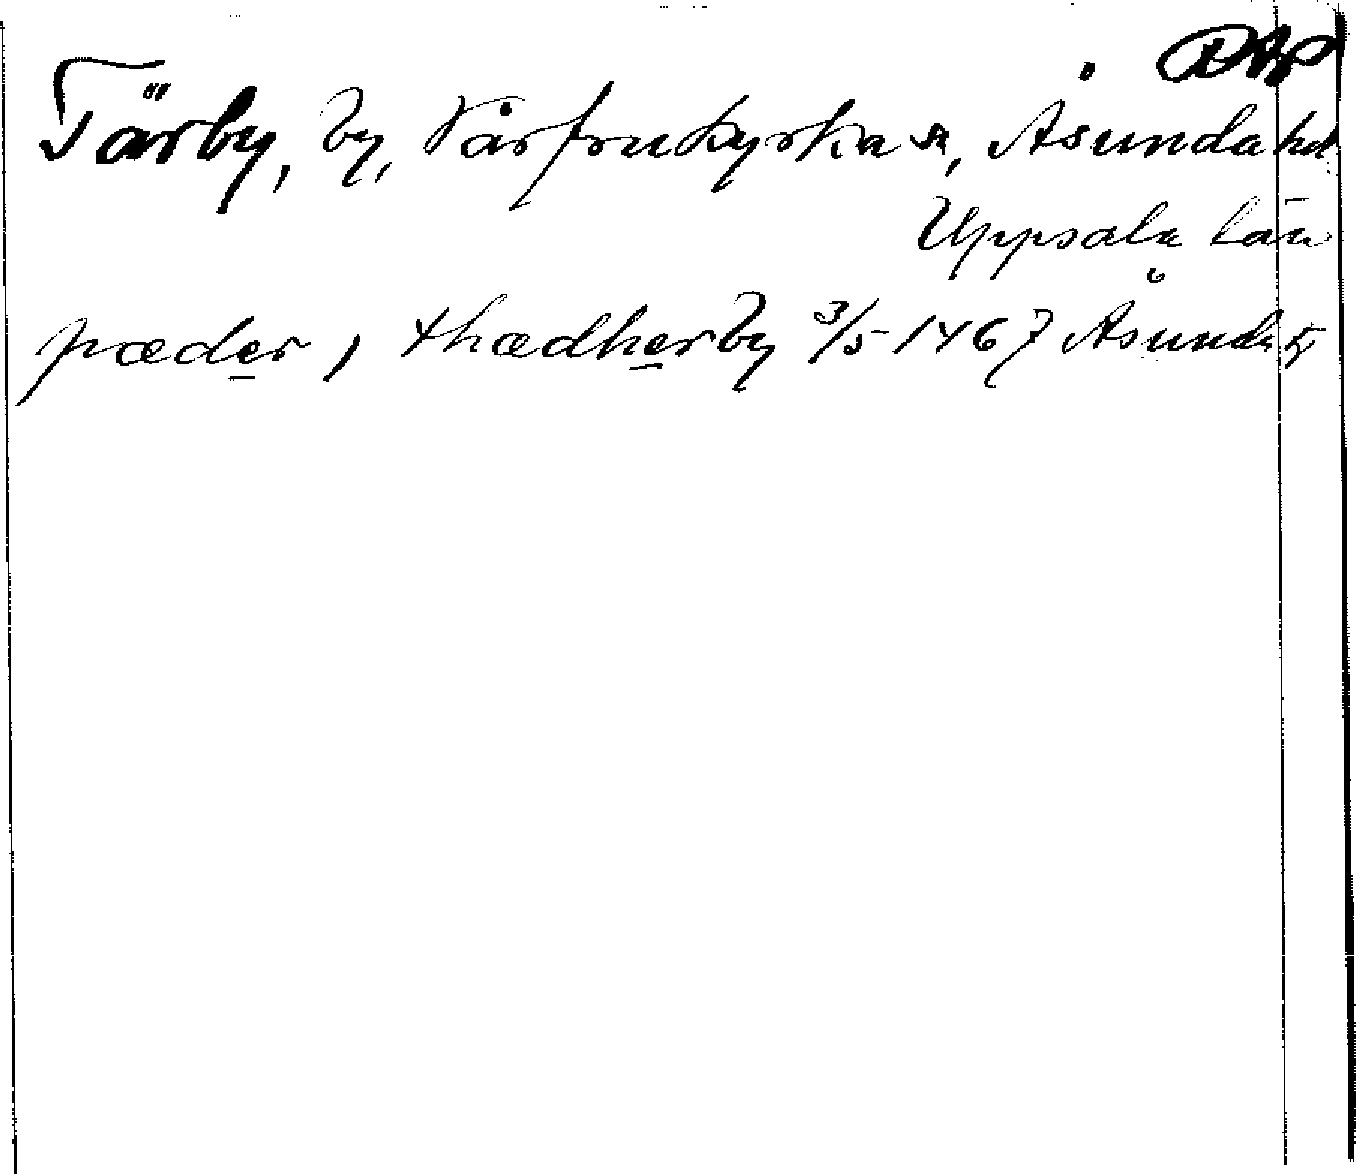 Tärby, by, Vårfrukyrka sn, Åsunda hd
Uppsala län
pæder i thædherby 3/5 1467 Åsunda